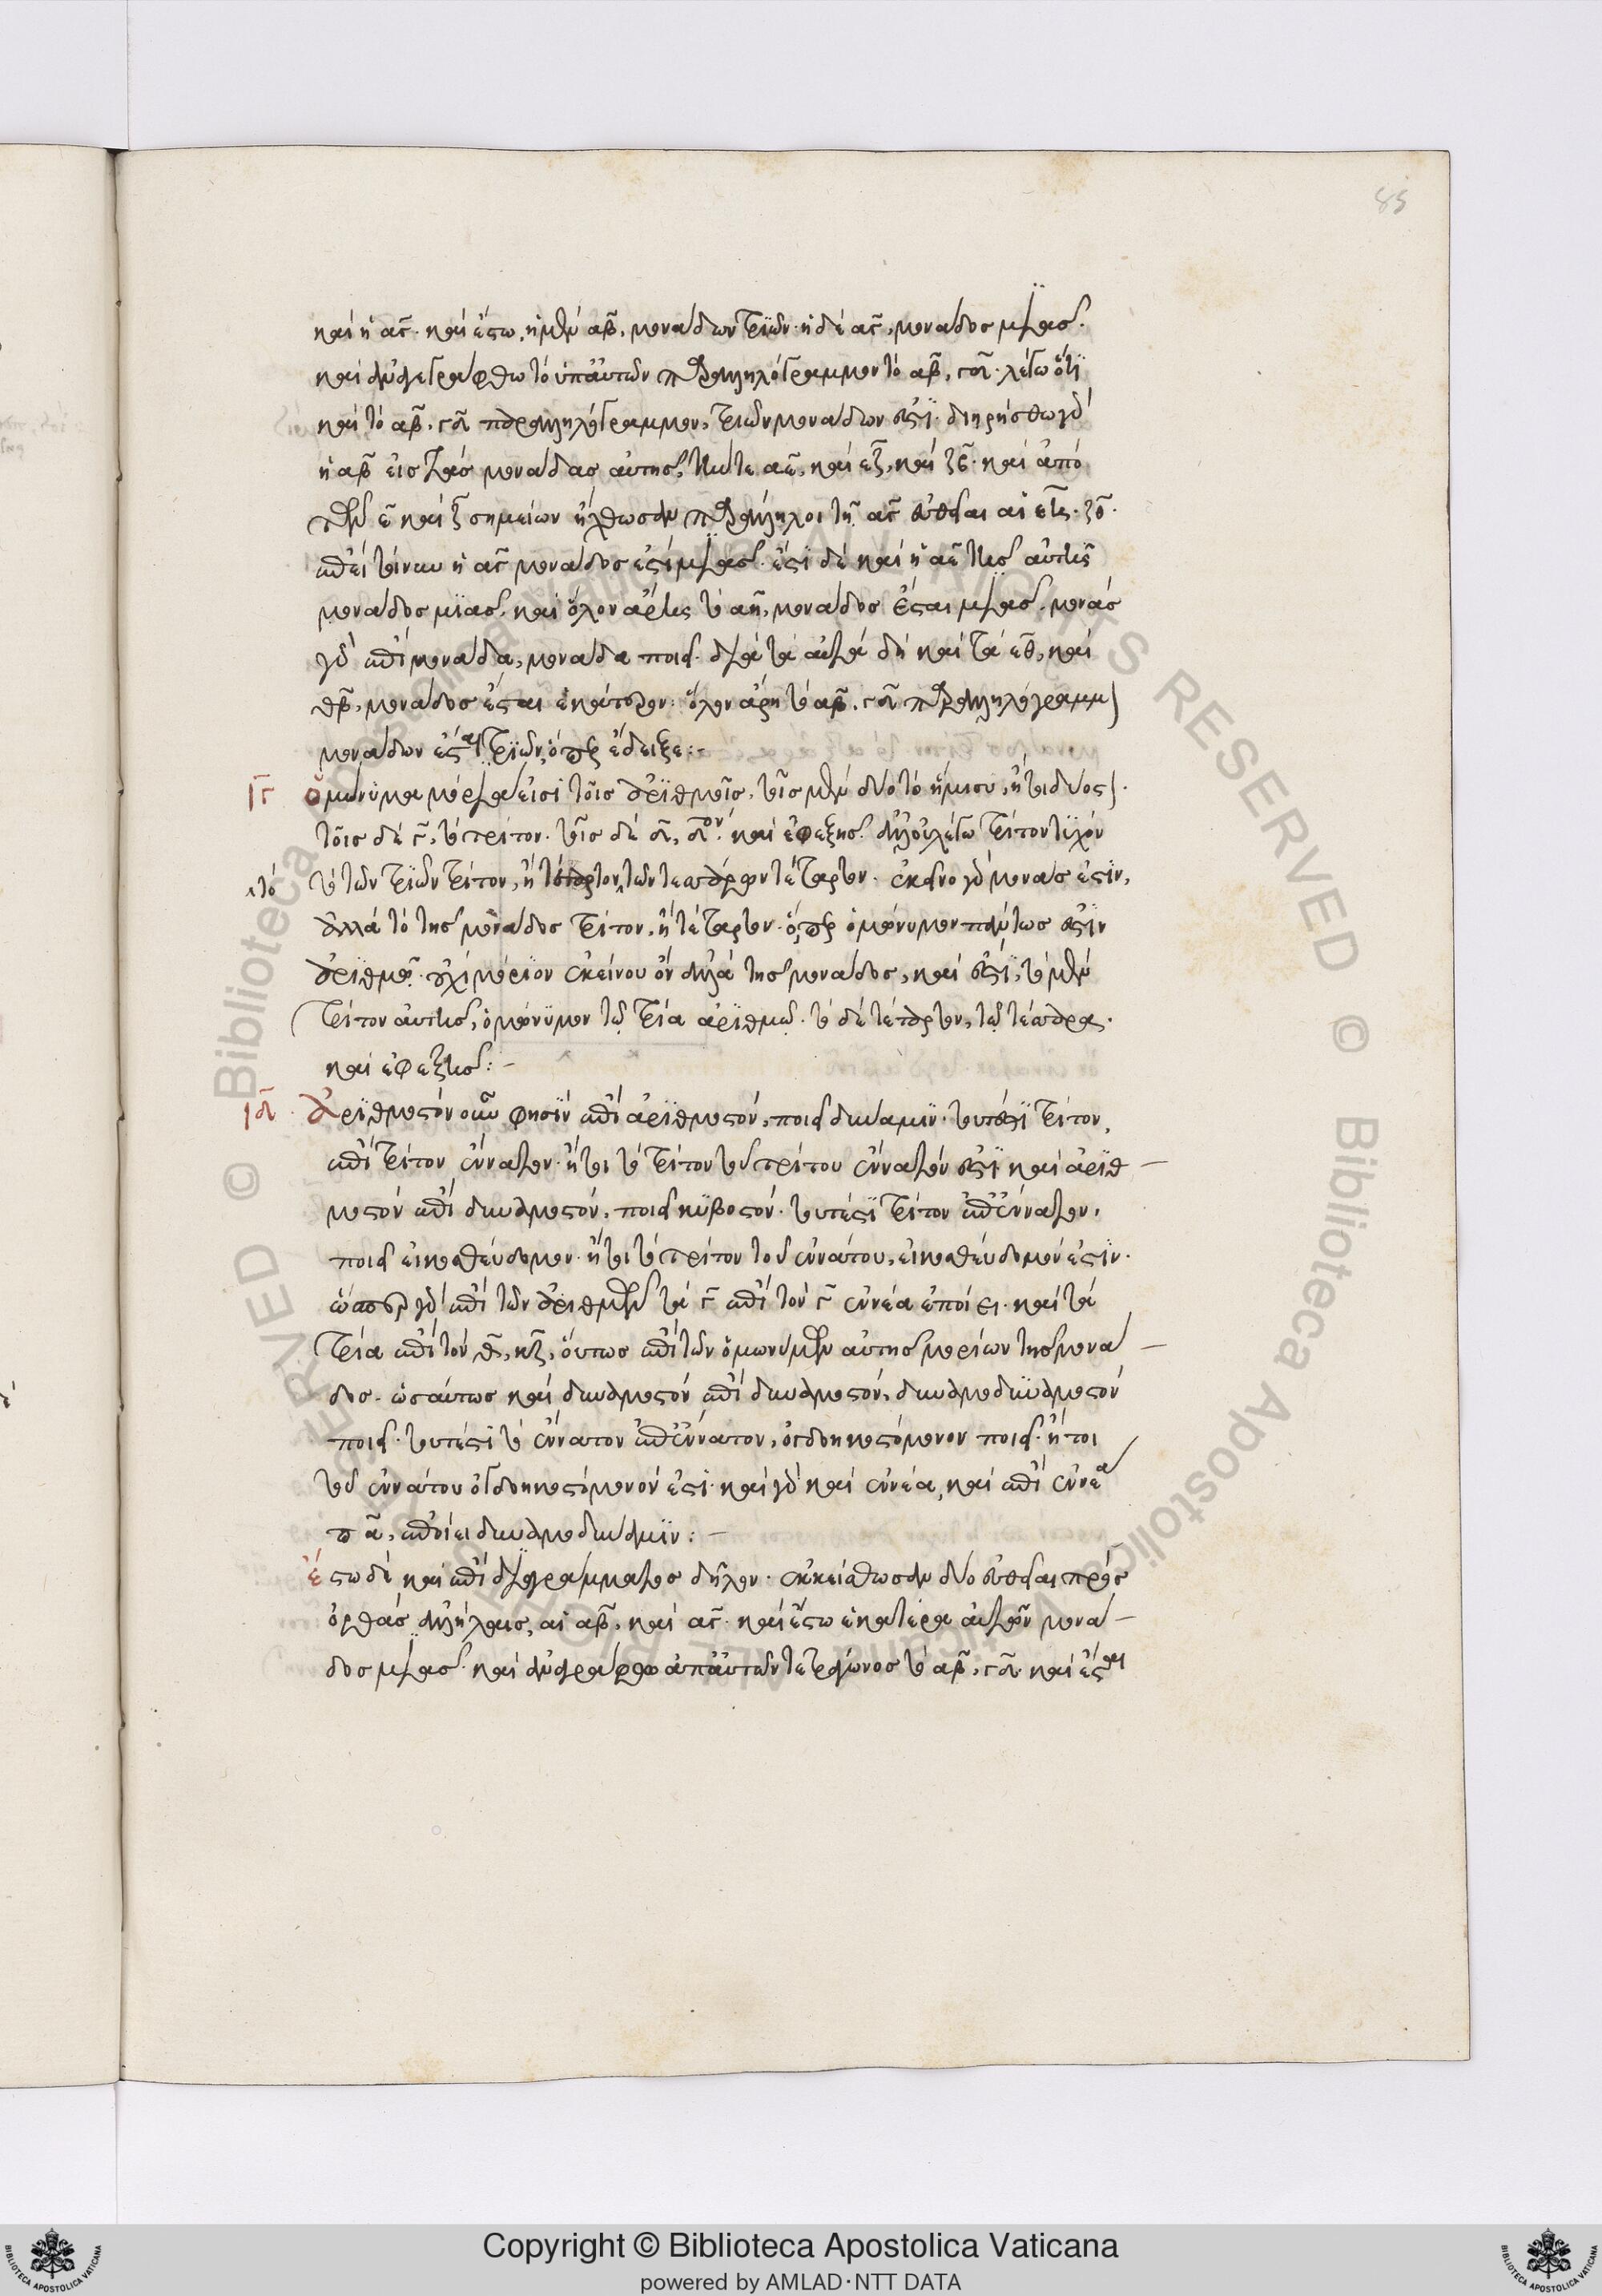 85
καὶ ἡ αγ̅. καὶ ἔστω, ἡ μὲν αβ̅, μονάδων τριῶν· ἡ δὲ αγ̅, μονάδος μιᾶς.
καὶ ἀναγεγράφθω τὸ ὑπ' αὐτῶν παραλληλόγραμμον τὸ αβ̅, γδ̅. λέγω ὅτι
καὶ τὸ αβ̅, γδ̅ παραλληλόγραμμον, τριῶν μονάδων ἐστί. διηρήσθω γὰρ
ἡ αβ̅ εἰς τὰς μονάδας αὐτῆς, τήν τε αε̅, καὶ εζ̅, καὶ ζβ̅. καὶ ἀπὸ
τῶν ε̅ καὶ ζ̅ σημείων ἤχθωσαν παράλληλοι τῇ αγ̅ εὐθεῖαι αἱ
ἐπεὶ τοίνυν ἡ αγ̅ μονάδος ἐστὶ μιᾶς. ἔστι δὲ καὶ ἡ αε̅
μονάδος μιᾶς, καὶ ὅλον ἄρα τὸ αη̅, μονάδος ἔσται μιᾶς. μονὰς
γὰρ ἐπὶ μονάδα, μονάδα ποιεῖ. διὰ τὰ αὐτὰ δὴ καὶ τὰ εθ̅, καὶ
θβ̅, μονάδος ἔσται ἑκάτερον. ὅλον ἄρα τὸ αβ̅, γδ̅ παραλληλόγραμμ
μονάδων ἔσται τριῶν, ὅπερ ἔδει δεῖξαι:-
ιγ̅ ὁμώνυμα μόρια εἰσὶ τοῖς ἀριθμοῖς, τοῖς μὲν δύο τὸ ἥμισυ,
τοῖς δὲ γ̅, τὸ τρίτον. τοῖς δὲ δ̅, δ̅ον. καὶ ἐφεξῆς. ἀλλ' οὐ λέγω τρίτον
τὸ τὸ τῶν τριῶν τρίτον, ἢ τέταρτον τῶν τεσσάρων τέταρτον. ἐκεῖνο γὰρ μονάς ἐστιν,
ἀλλὰ τὸ τῆς μονάδος τρίτον, ἢ τέταρτον. ὅπερ ὁμώνυμον πάντως ἐστὶν
ἀριθμῷ. οὐχὶ μόριον ἐκείνου ὂν ἀλλὰ τῆς μονάδος, καὶ ἐστὶ, τὸ μὲν
τρίτον αὐτῆς, ὁμώνυμον τῷ τρία ἀριθμῷ. τὸ δὲ τέταρτον, τῷ τέσσαρα.
καὶ ἐφεξῆς:-
ιδ̅ ἀριθμοστὸν οὖν φησὶν ἐπὶ ἀριθμοστόν, ποιεῖ δύναμιν. τουτέστι τρίτον,
ἐπὶ τρίτον ἔννατον. ἤτοι τὸ τρίτον τοῦ τρίτου ἔννατόν ἐστι καὶ ἀριθ-
μοστὸν ἐπὶ δυναμοστόν, ποιεῖ κυβοστόν. τουτέστι τρίτον ἐπ' ἔννατον,
ποιεῖ εἰκοσθέυδομον. ἤτοι τὸ τρίτον τοῦ ἐννάτου, εἰκοσθέυδομόν ἐστιν.
ὥσπερ γὰρ ἐπὶ τῶν ἀριθμῶν τὰ γ̅ ἐπὶ τὸν γ̅ ἐννέα ἐποίει. καὶ τὰ
τρία ἐπὶ τὸν θ̅, κζ̅, οὕτως ἐπὶ τῶν ὁμωνύμων αὐτῆς μορίων τῆς μονά-
δος. ὡσαύτως καὶ δυναμοστὸν ἐπὶ δυναμοστόν, δυναμοδυναμοστὸν
ποιεῖ. τουτέστι τὸ ἔννατον ἐπ' ἔννατον, ὀγδοηκοστόμονον ποιεῖ. ἤτοι
τοῦ ἐννάτου ὀγδοηκοστόμονόν ἐστι. καὶ γὰρ καὶ ἐννέα, καὶ ἐπὶ ἐννέα
πα̅, ἐποίει δυναμοδύναμιν:-
ἔστω δὲ καὶ ἐπὶ διαγράμματος δῆλον. ἐκκείσθωσαν δύο εὐθεῖαι πρὸς
ὀρθὰς ἀλλήλαις, αἱ αβ̅, καὶ αγ̅. καὶ ἔστω ἑκατέρα αὐτῶν μονά-
δος μιᾶς. καὶ ἀναγεγράφθω ἀπ' αὐτῶν τετράγωνος τὸ αβ̅, γδ̅. καὶ ἔσται
Copyright © Biblioteca Apostolica Vaticana
powered by AMLAD·NTT DATA